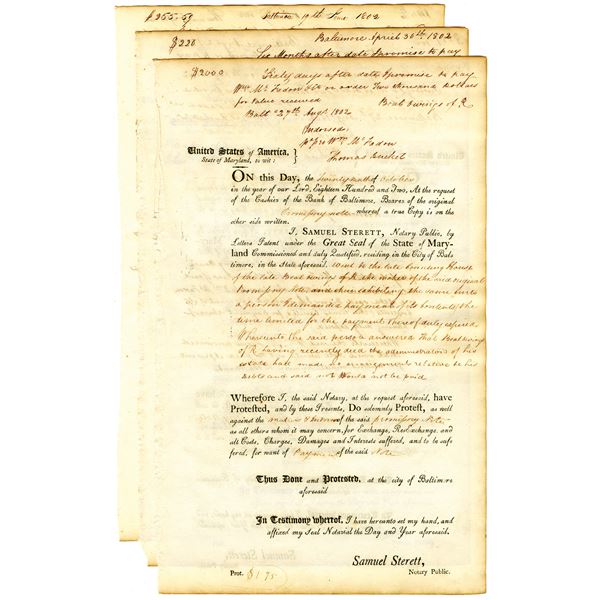 $355.59 Baltimore 19th June 1802
$226 Baltimore April 30th 1802
Six Months after date I promise to pay
$2000 Sixty days after date I promise to pay
Wm Mc Fadon or order Two thousand Dollars
for Value received Beal Owings of R
Balt 27th Augt 1802
Endorsed
Wm Mc Fadon
Thomas
United States of America, }
State of Maryland, to wit: }
ON this Day, the of October
in the year of our Lord, Eighteen Hundred and Two, At the request
of the Cashier of the Bank of Baltimore, Bearer of the original
Promissory note whereof a true Copy is on the
other side written.
I, SAMUEL STERETT, Notary Public, by
Letters Patent under the Great Seal of the State of Mary-
land Commissioned and duly Qualified, residing in the City of Bal-
timore, in the State aforesaid, went to the late Counting House
of the late Beal Owings of R the maker of the said original
Promissory Note, and there exhibiting the same unto
a person I demanded payment of its contents the
time limited for the payment thereof duly expired
Whereunto the said person answered That Beal Owings
of R having recently died the administrators of his
estate had made no arrangements relative to his
debts and said note would not be paid
Wherefore I, the said Notary, at the request aforesaid, have
Protested, and by these Presents, Do solemnly Protest, as well
against the maker & Indorser of the said promissory Note
as all others whom it may concern, for Exchange, Re-Exchange, and
all Costs, Charges, Damages and Interests suffered, and to be suf-
fered, for want of Payment of the said Note
Thus Done and Protested, at the city of Baltimore
aforesaid
In Testimony whereof, I have hereunto set my hand, and
affixed my Seal Notarial the Day and Year aforesaid.
Samuel Sterett,
Prot. $1.75 Notary Public.